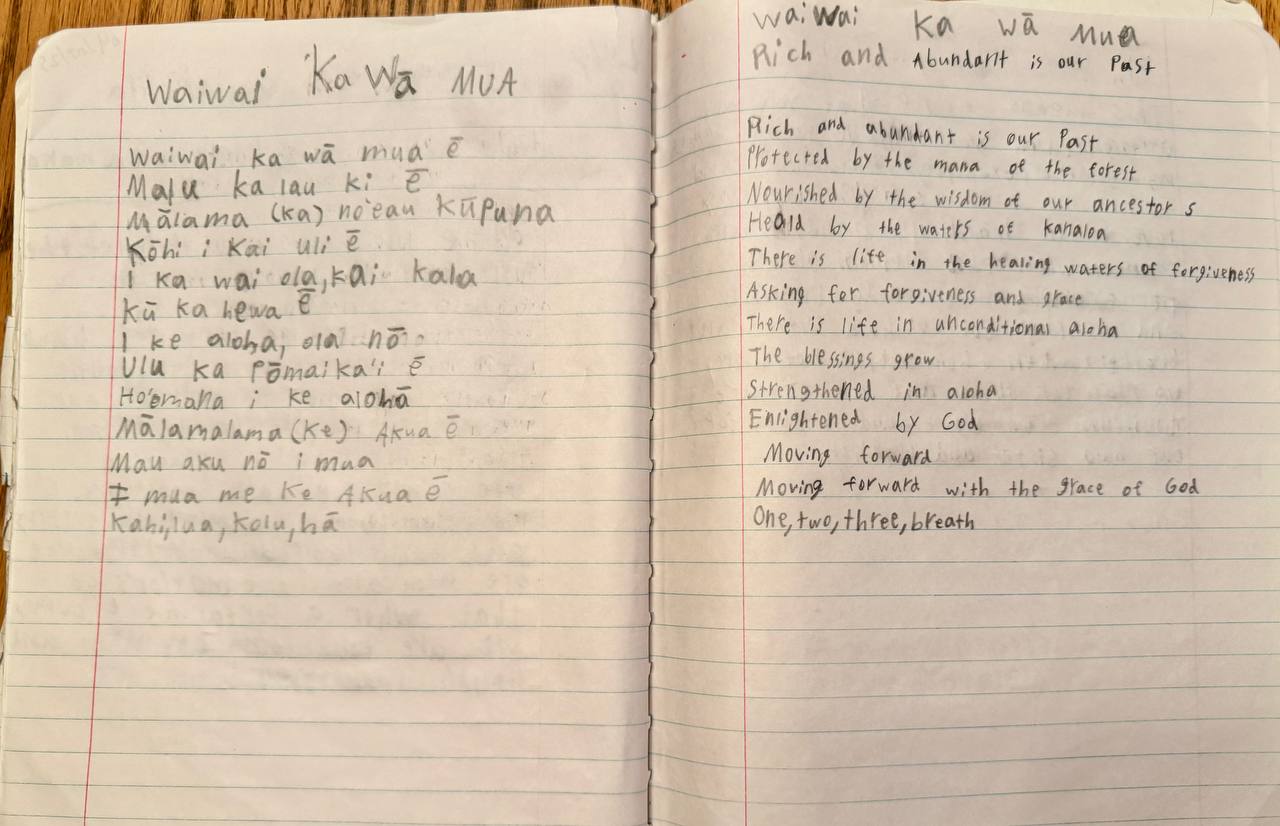 Waiwai Ka Wā MUA
Waiwai ka wā mua ē
Malu ka lau ki ē
Mālama (ka) no'eau Kūpuna
Kōhi i Kai uli ē
I ka wai ola, kai kala
Kū ka hewa ē
I ke aloha, ola nō
Ulu ka Pōmaika'i ē
Ho'omana i ke alohā
Mālamalama (Ke) Akua ē
Mau aku nō i mua
I mua me Ke Akua ē
Kahi, lua, Kolu, hā
Waiwai Ka wā Mua
Rich and Abundant is our Past
Rich and abundant is our Past
Protected by the mana of the forest
Nourished by the wisdom of our ancestors
Heald by the waters of kanaloa
There is life in the healing waters of forgiveness
Asking for forgiveness and grace
There is life in unconditional aloha
The blessings grow
Strengthened in aloha
Enlightened by God
Moving forward
Moving forward with the grace of God
One, two, three, breath